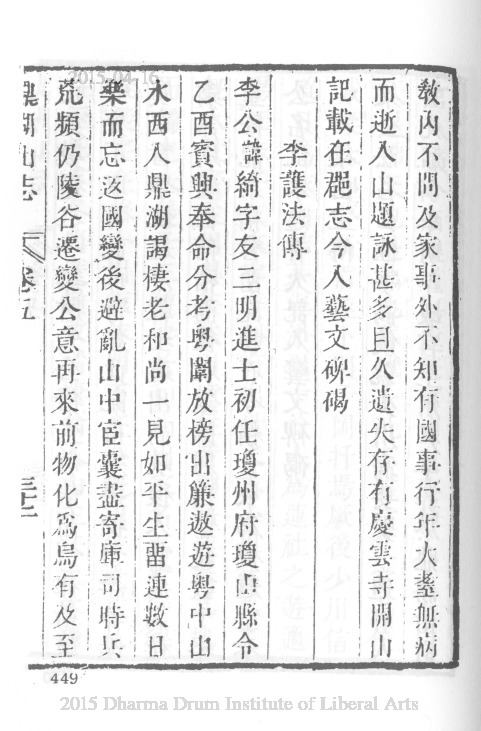 2015-04-16
敎內不問及家事外不知有國事行年大耋無病
而逝入山題詠甚多且久遺失存有慶雲寺開山
記載在郡志今入藝文碑碣
李護法傳
李公諱綺字友三明進士初任瓊州府瓊山縣令
乙酉賓興奉命分考粤闈放榜出簾遨遊粤中山
水西入鼎湖謁棲老和尚一見如平生畱連數日
樂而忘返國變後避亂山中宦囊盡寄庫司時兵
荒頻仍陵谷遷變公意再來前物化爲烏有及至
鼎湖山志 卷五 三十二
449
2015 Dharma Drum Institute of Liberal Arts